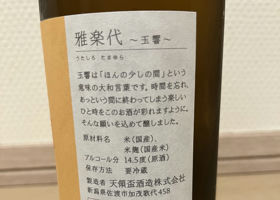 雅楽代 〜玉響〜
うたしろ たまゆら
玉響は「ほんの少しの間」という
意味の大和言葉です。時間を忘れ、
あっという間に終わってしまう楽しい
ひと時をこのお酒が彩れますように。
そんな願いを込めて醸しました。
原材料名 米(国産)
米麹(国産米)
アルコール分 14.5度(原酒)
保存方法 要冷蔵
製造者 天領盃酒造株式会社
新潟県佐渡市加茂歌代458